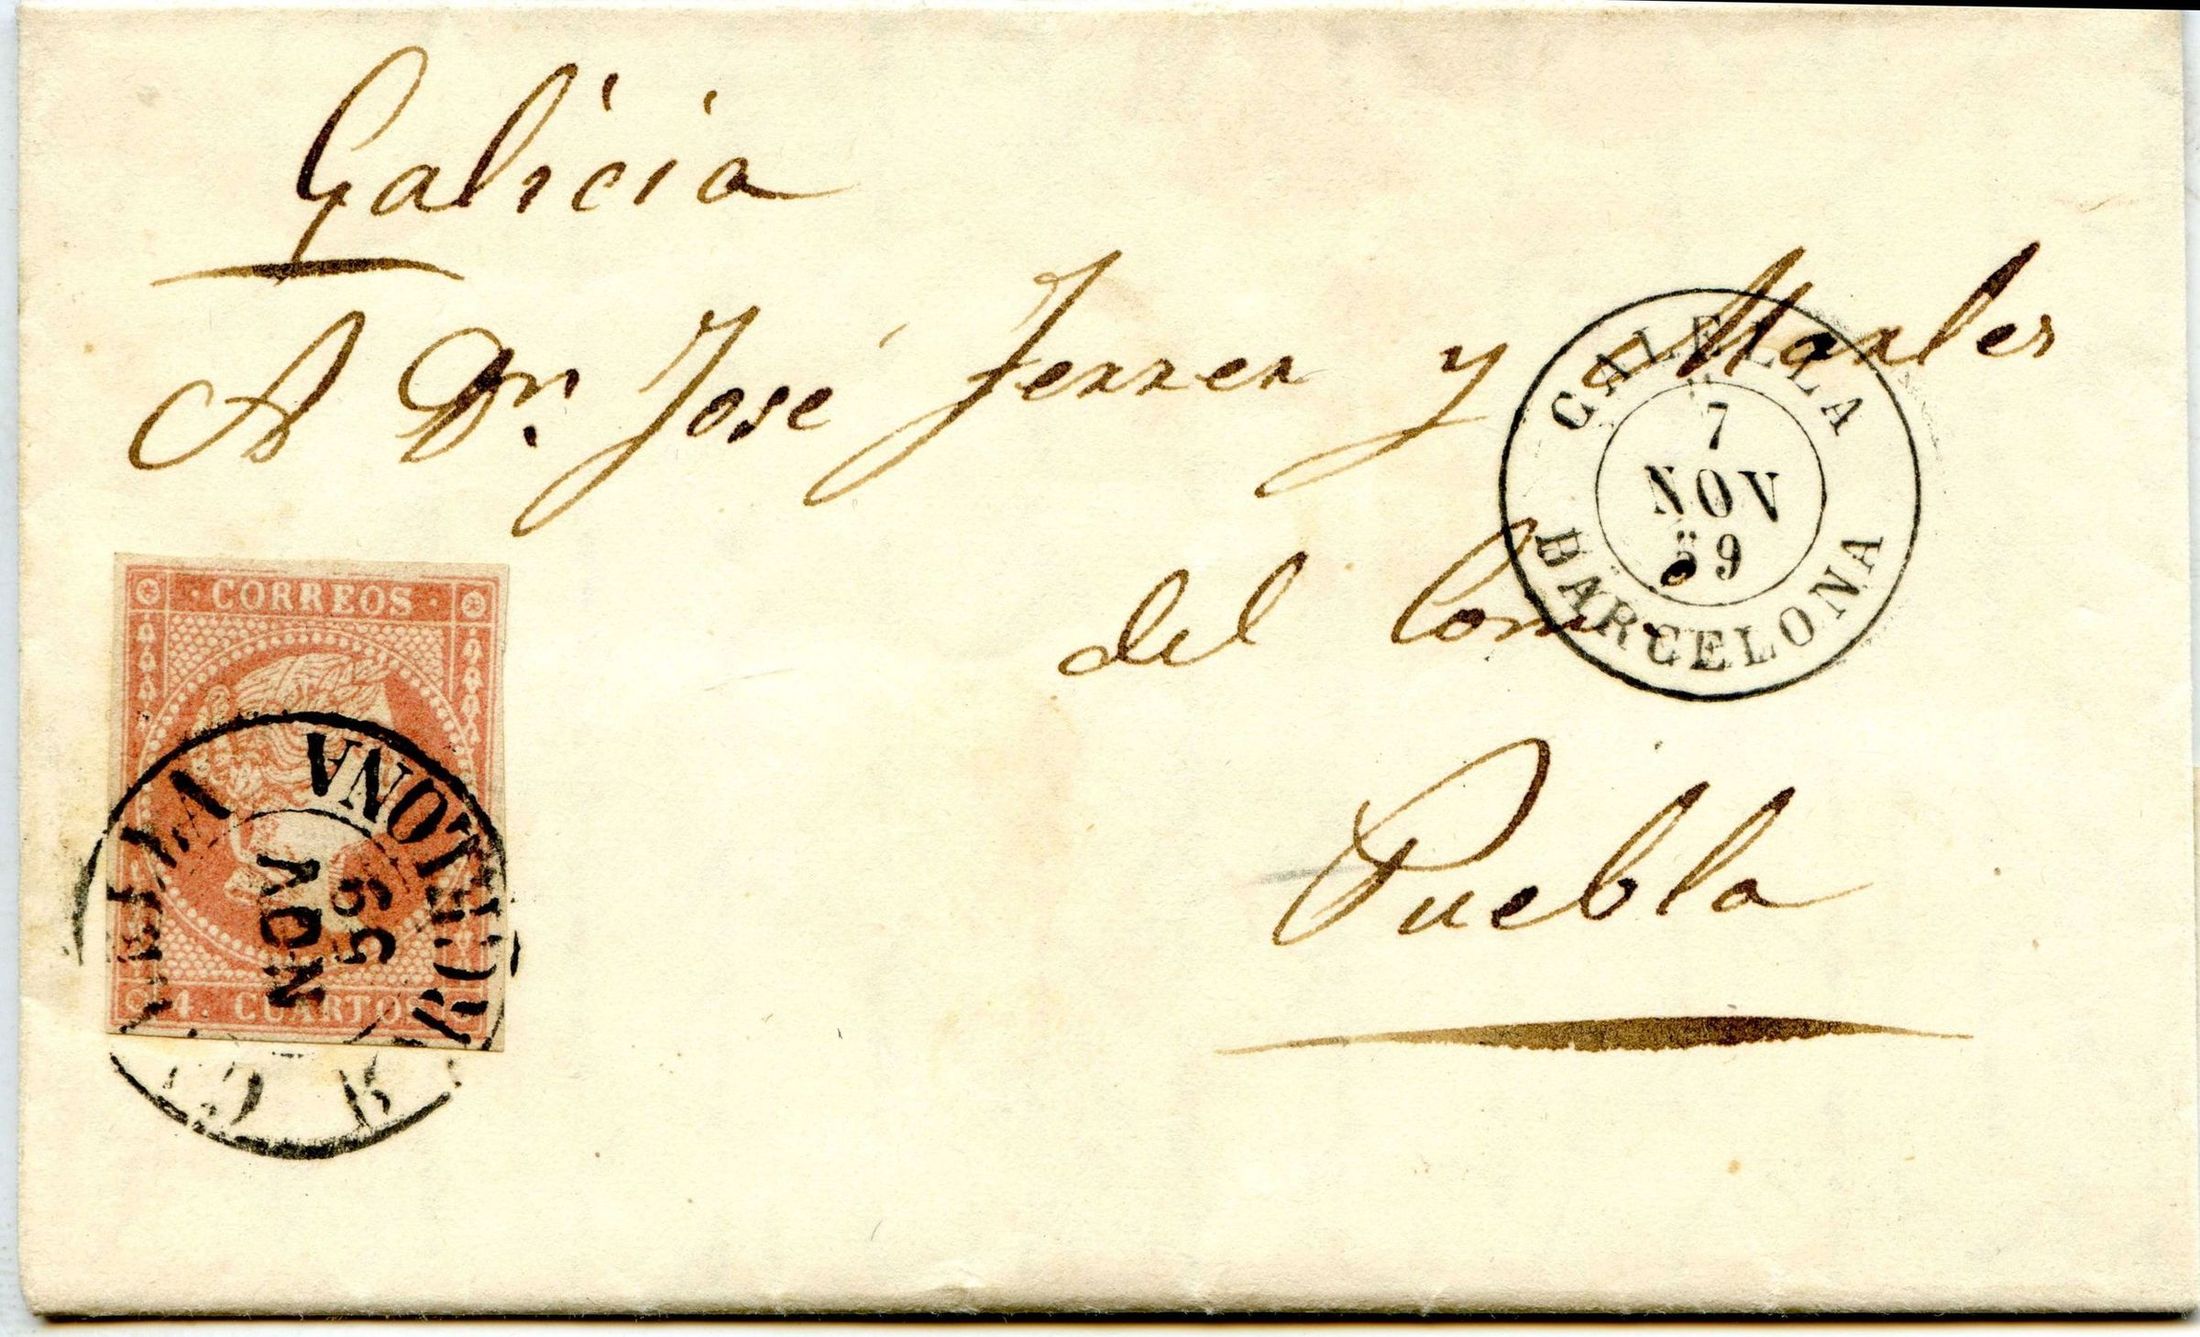 Galicia
A Dn. José Ferrer y Marles
del Com.
Puebla
CALELLA
7
NOV
59
BARCELONA
CORREOS
4. CUARTOS
NOV
59
BARCELONA